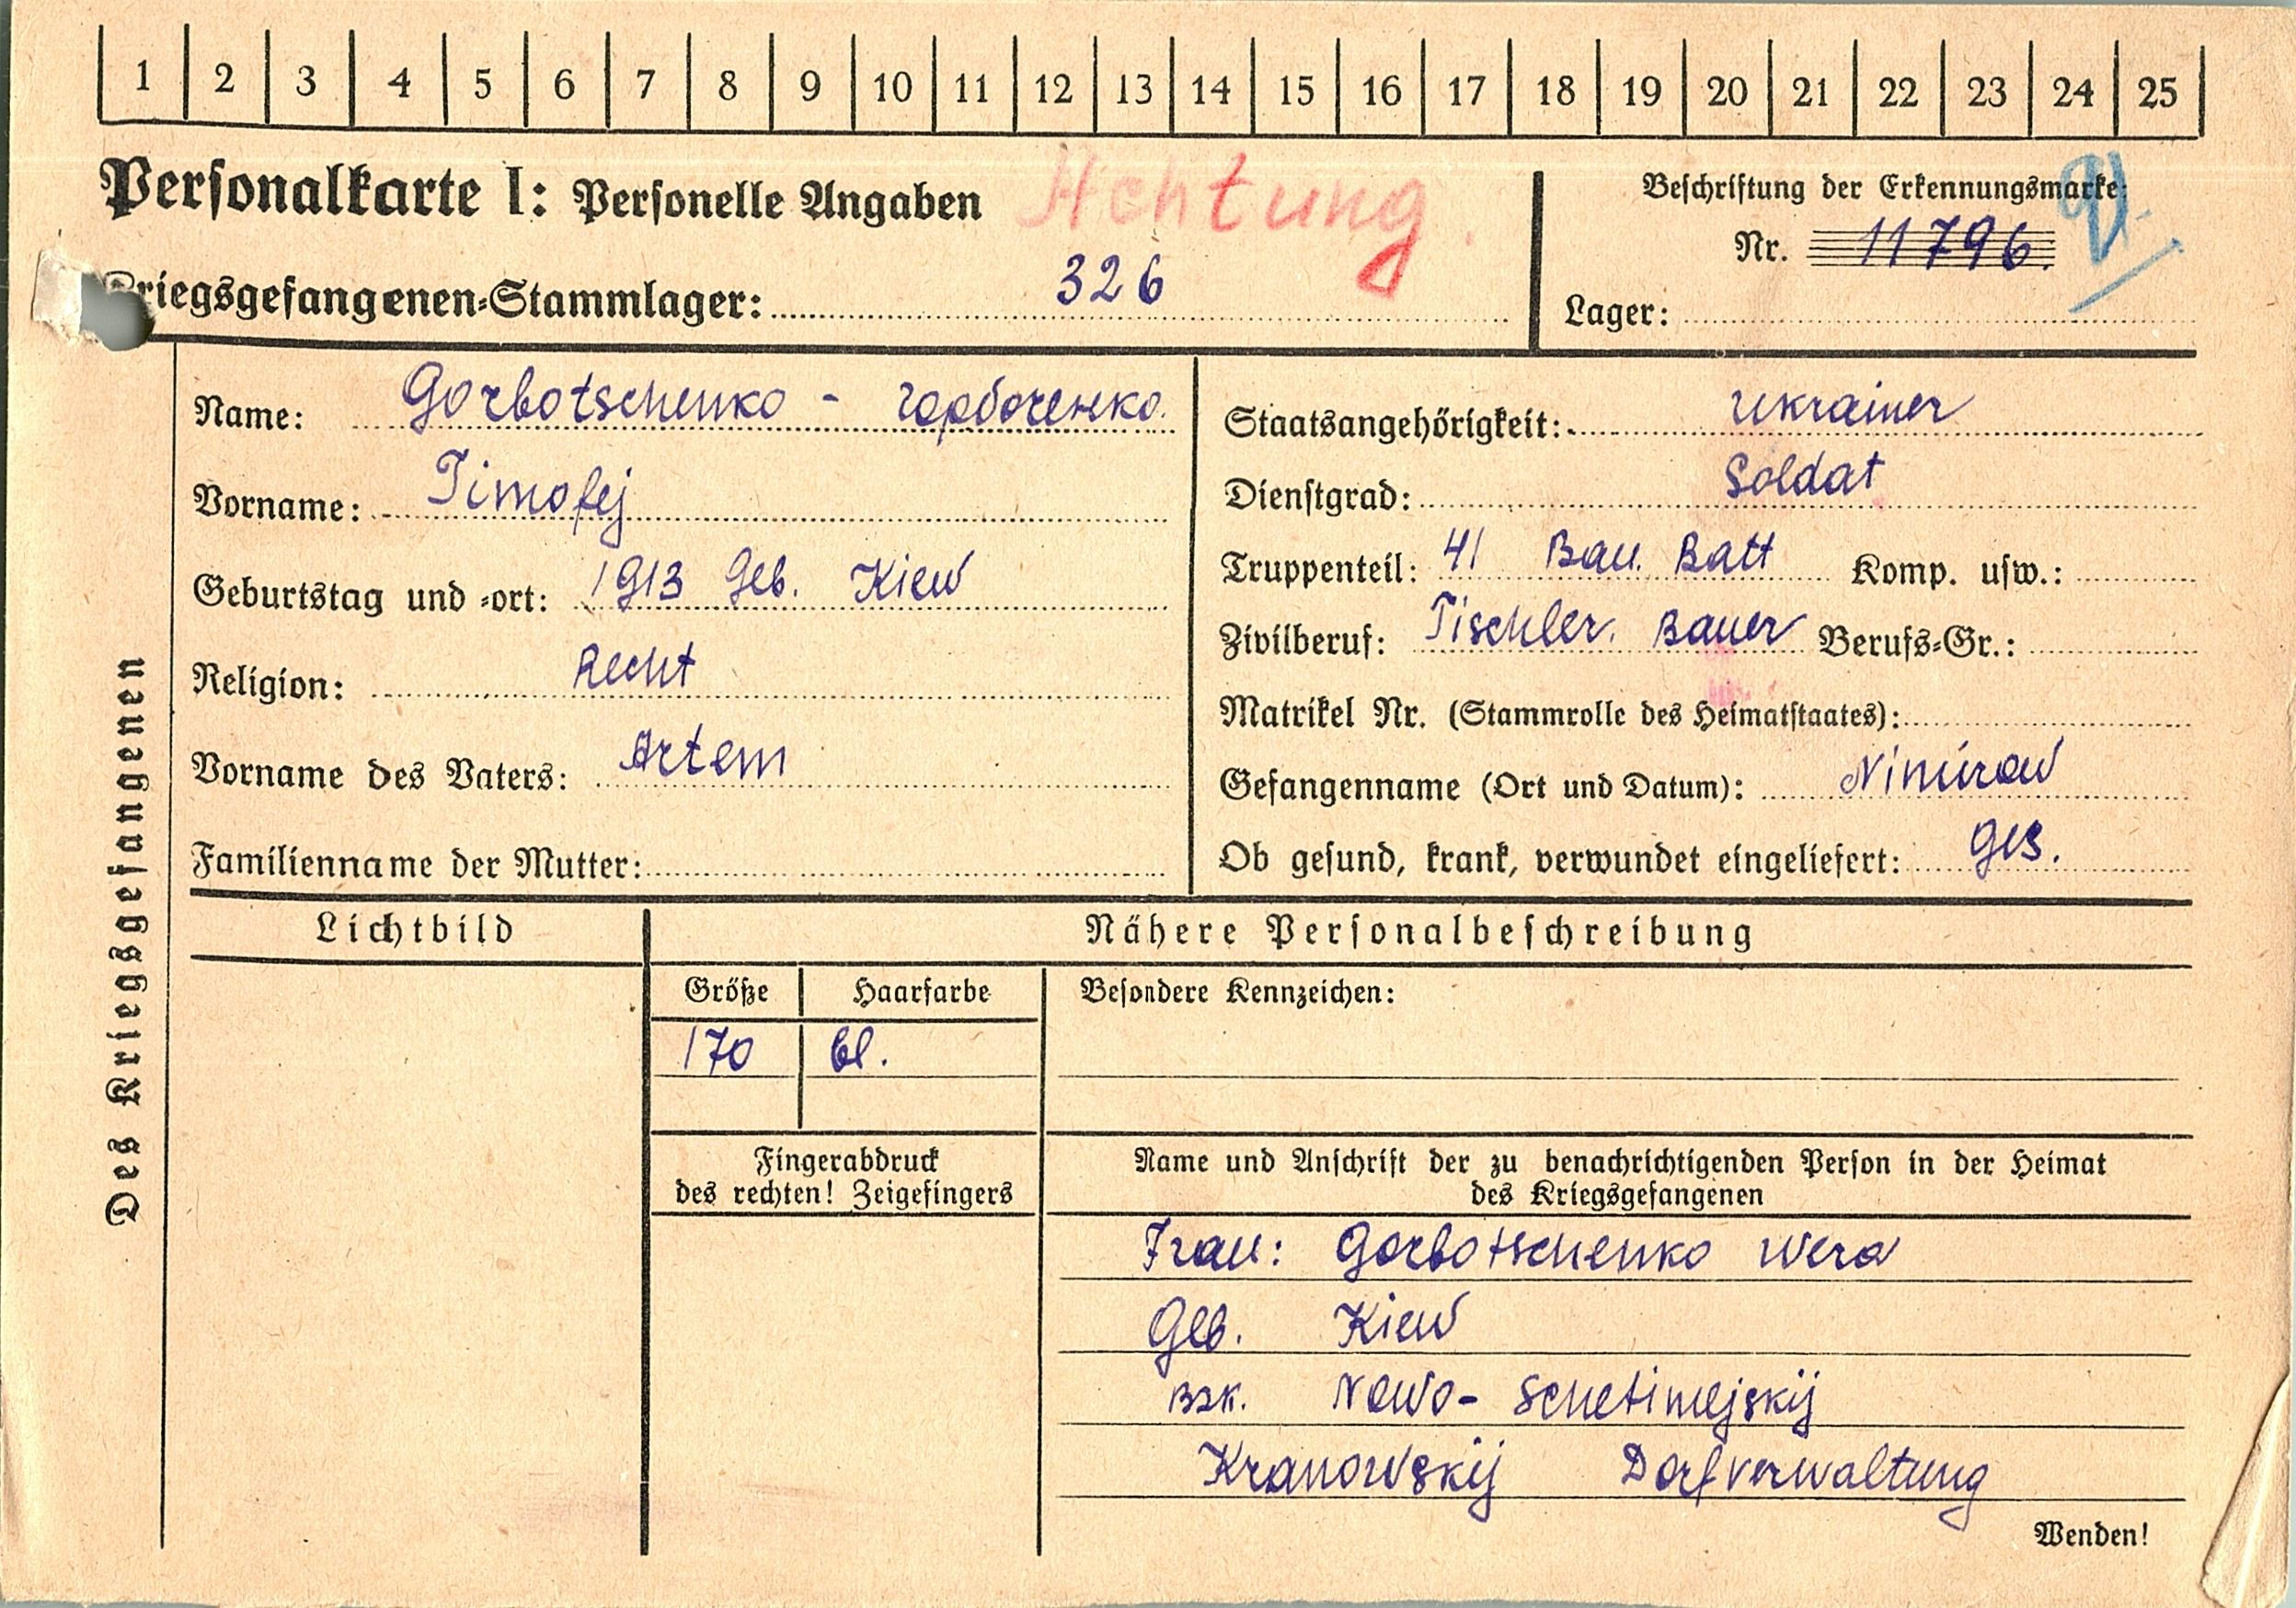 1 2 3 4 5 6 7 8 9 10 11 12 13 14 15 16 17 18 19 20 21 22 23 24 25
Personalkarte I: Personelle Angaben
Achtung.
Kriegsgefangenen-Stammlager: 326
Beschriftung der Erkennungsmarke:
Nr. 11796.
Lager:
Des Kriegsgefangenen
Name: Gorbotschenko - Горбоченко.
Vorname: Timofej
Geburtstag und -ort: 1913 Geb. Kiew
Religion: Recht
Vorname des Vaters: Artem
Familienname der Mutter:
Staatsangehörigkeit: Ukrainer
Dienstgrad: Soldat
Truppenteil: 41 Bau. Batt Komp. usw.:
Zivilberuf: Tischler. Bauer Berufs-Gr.:
Matrikel Nr. (Stammrolle des Heimatstaates):
Gefangenname (Ort und Datum): Nimirow
Ob gesund, krank, verwundet eingeliefert: Ges.
Lichtbild
Nähere Personalbeschreibung
Größe Haarfarbe
170 bl.
Besondere Kennzeichen:
Fingerabdruck
des rechten! Zeigefingers
Name und Anschrift der zu benachrichtigenden Person in der Heimat
des Kriegsgefangenen
Frau: Gorbotschenko Wera
Geb. Kiew
Bzk. Nowo- Schetinejskij
Kranowskij Dorfverwaltung
Wenden!